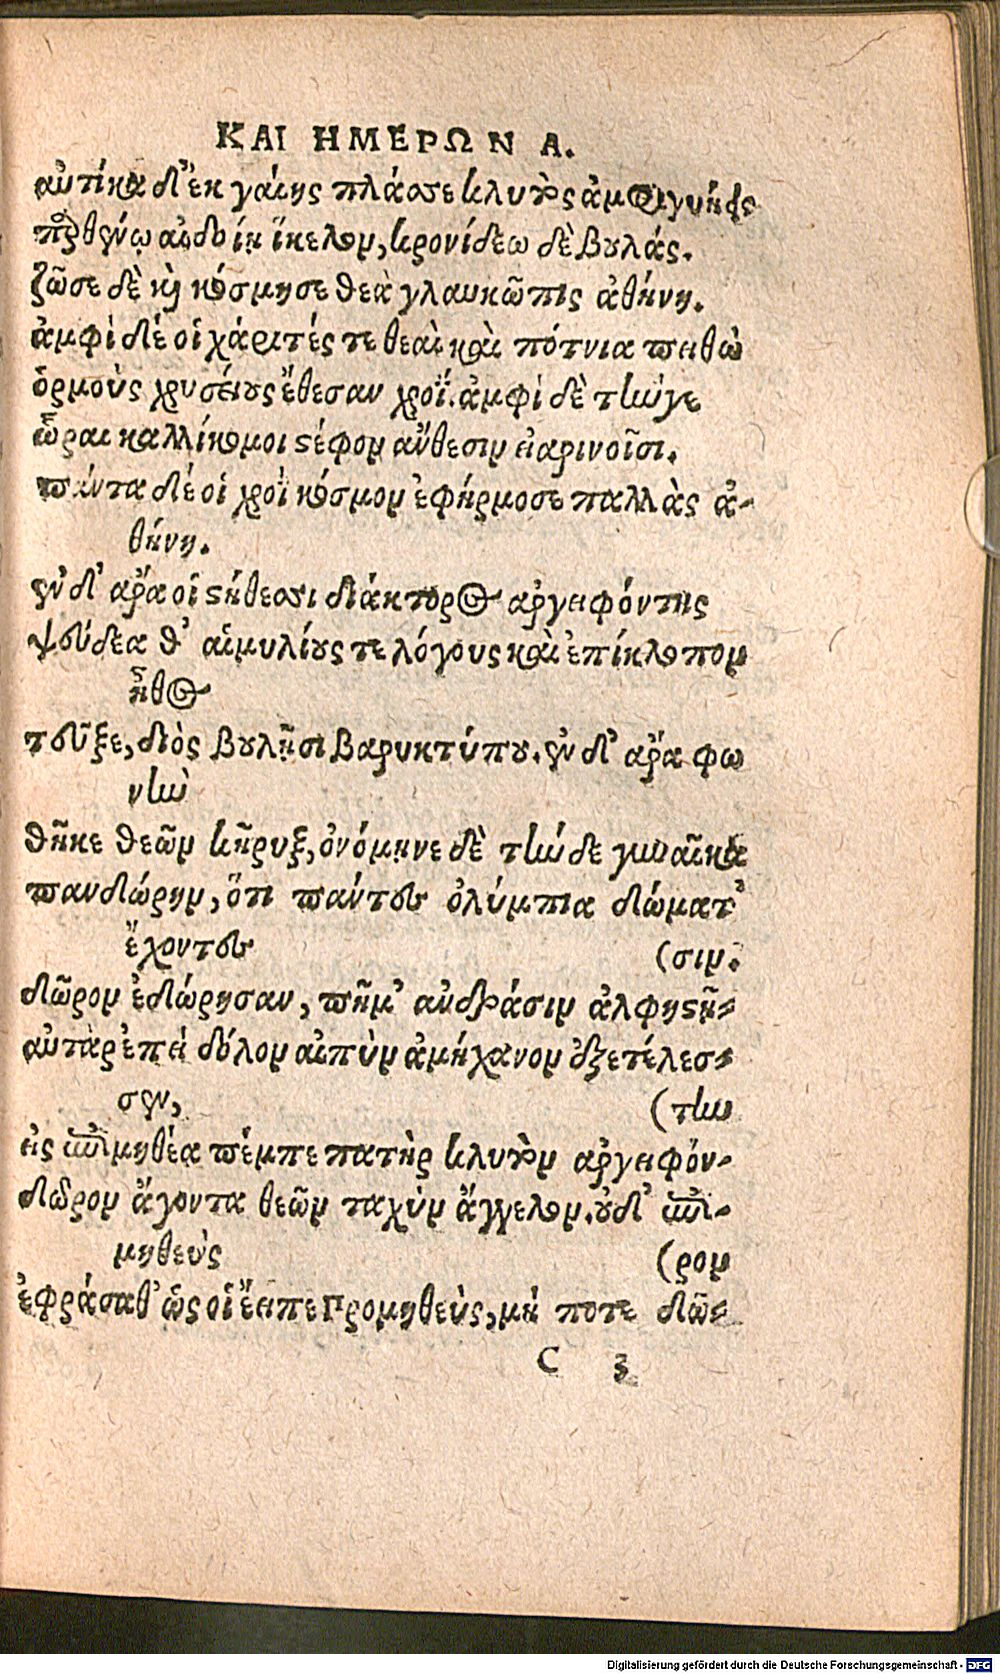 ΚΑΙ ΗΜΕΡΩΝ Α.
αὐτίκα δ' ἐκ γαίης πλάσσε κλυτὸς ἀμφιγυήεις
παρθένῳ αἰδοίῃ ἴκελον, κρονίδεω δὲ βουλάς.
ζῶσε δὲ καὶ κόσμησε θεὰ γλαυκῶπις ἀθήνη.
ἀμφὶ δέ οἱ χάριτές τε θεαὶ καὶ πότνια πειθὼ
ὁρμοὺς χρυσείους ἔθεσαν χροΐ. ἀμφὶ δὲ τήνγε
ὧραι καλλίκομοι στέφον ἄνθεσιν εἰαρινοῖσι.
πάντα δέ οἱ χροῒ κόσμον ἐφήρμοσε παλλὰς ἀ-
θήνη.
ἐν δ' ἄρα οἱ στήθεσσι διάκτορος ἀργειφόντης
ψεύδεα θ' αἱμυλίους τε λόγους καὶ ἐπίκλοπον
ἦθος
τεῦξε, διὸς βουλῇσι βαρυκτύπου. ἐν δ' ἄρα φω
νὴν
θῆκε θεῶν κῆρυξ, ὀνόμηνε δὲ τήνδε γυναῖκα
πανδώρην, ὅτι πάντες ὀλύμπια δώματ'
ἔχοντες (σιν.
δῶρον ἐδώρησαν, πῆμ' ἀνδράσιν ἀλφηστῇ-
αὐτὰρ ἐπεὶ δόλον αἰπὺν ἀμήχανον ἐξετέλεσ-
σεν, (την
εἰς ἐπιμηθέα πέμπε πατὴρ κλυτὸν ἀργειφόν-
δῶρον ἄγοντα θεῶν ταχὺν ἄγγελον. οὐδ' ἐπι-
μηθεὺς (ρον
ἐφράσαθ' ὥς οἱ ἔειπε Προμηθεὺς, μή ποτε δῶ-
C 3
Digitalisierung gefördert durch die Deutsche Forschungsgemeinschaft - DFG